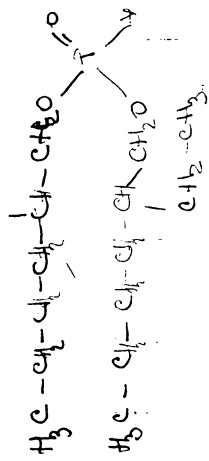 H₃C–CH₂–CH₂–CH₂–CH–CH₂O
O
H₃C–CH₂–CH₂–CH₂–CH
CH₂O
CH₂–CH₃